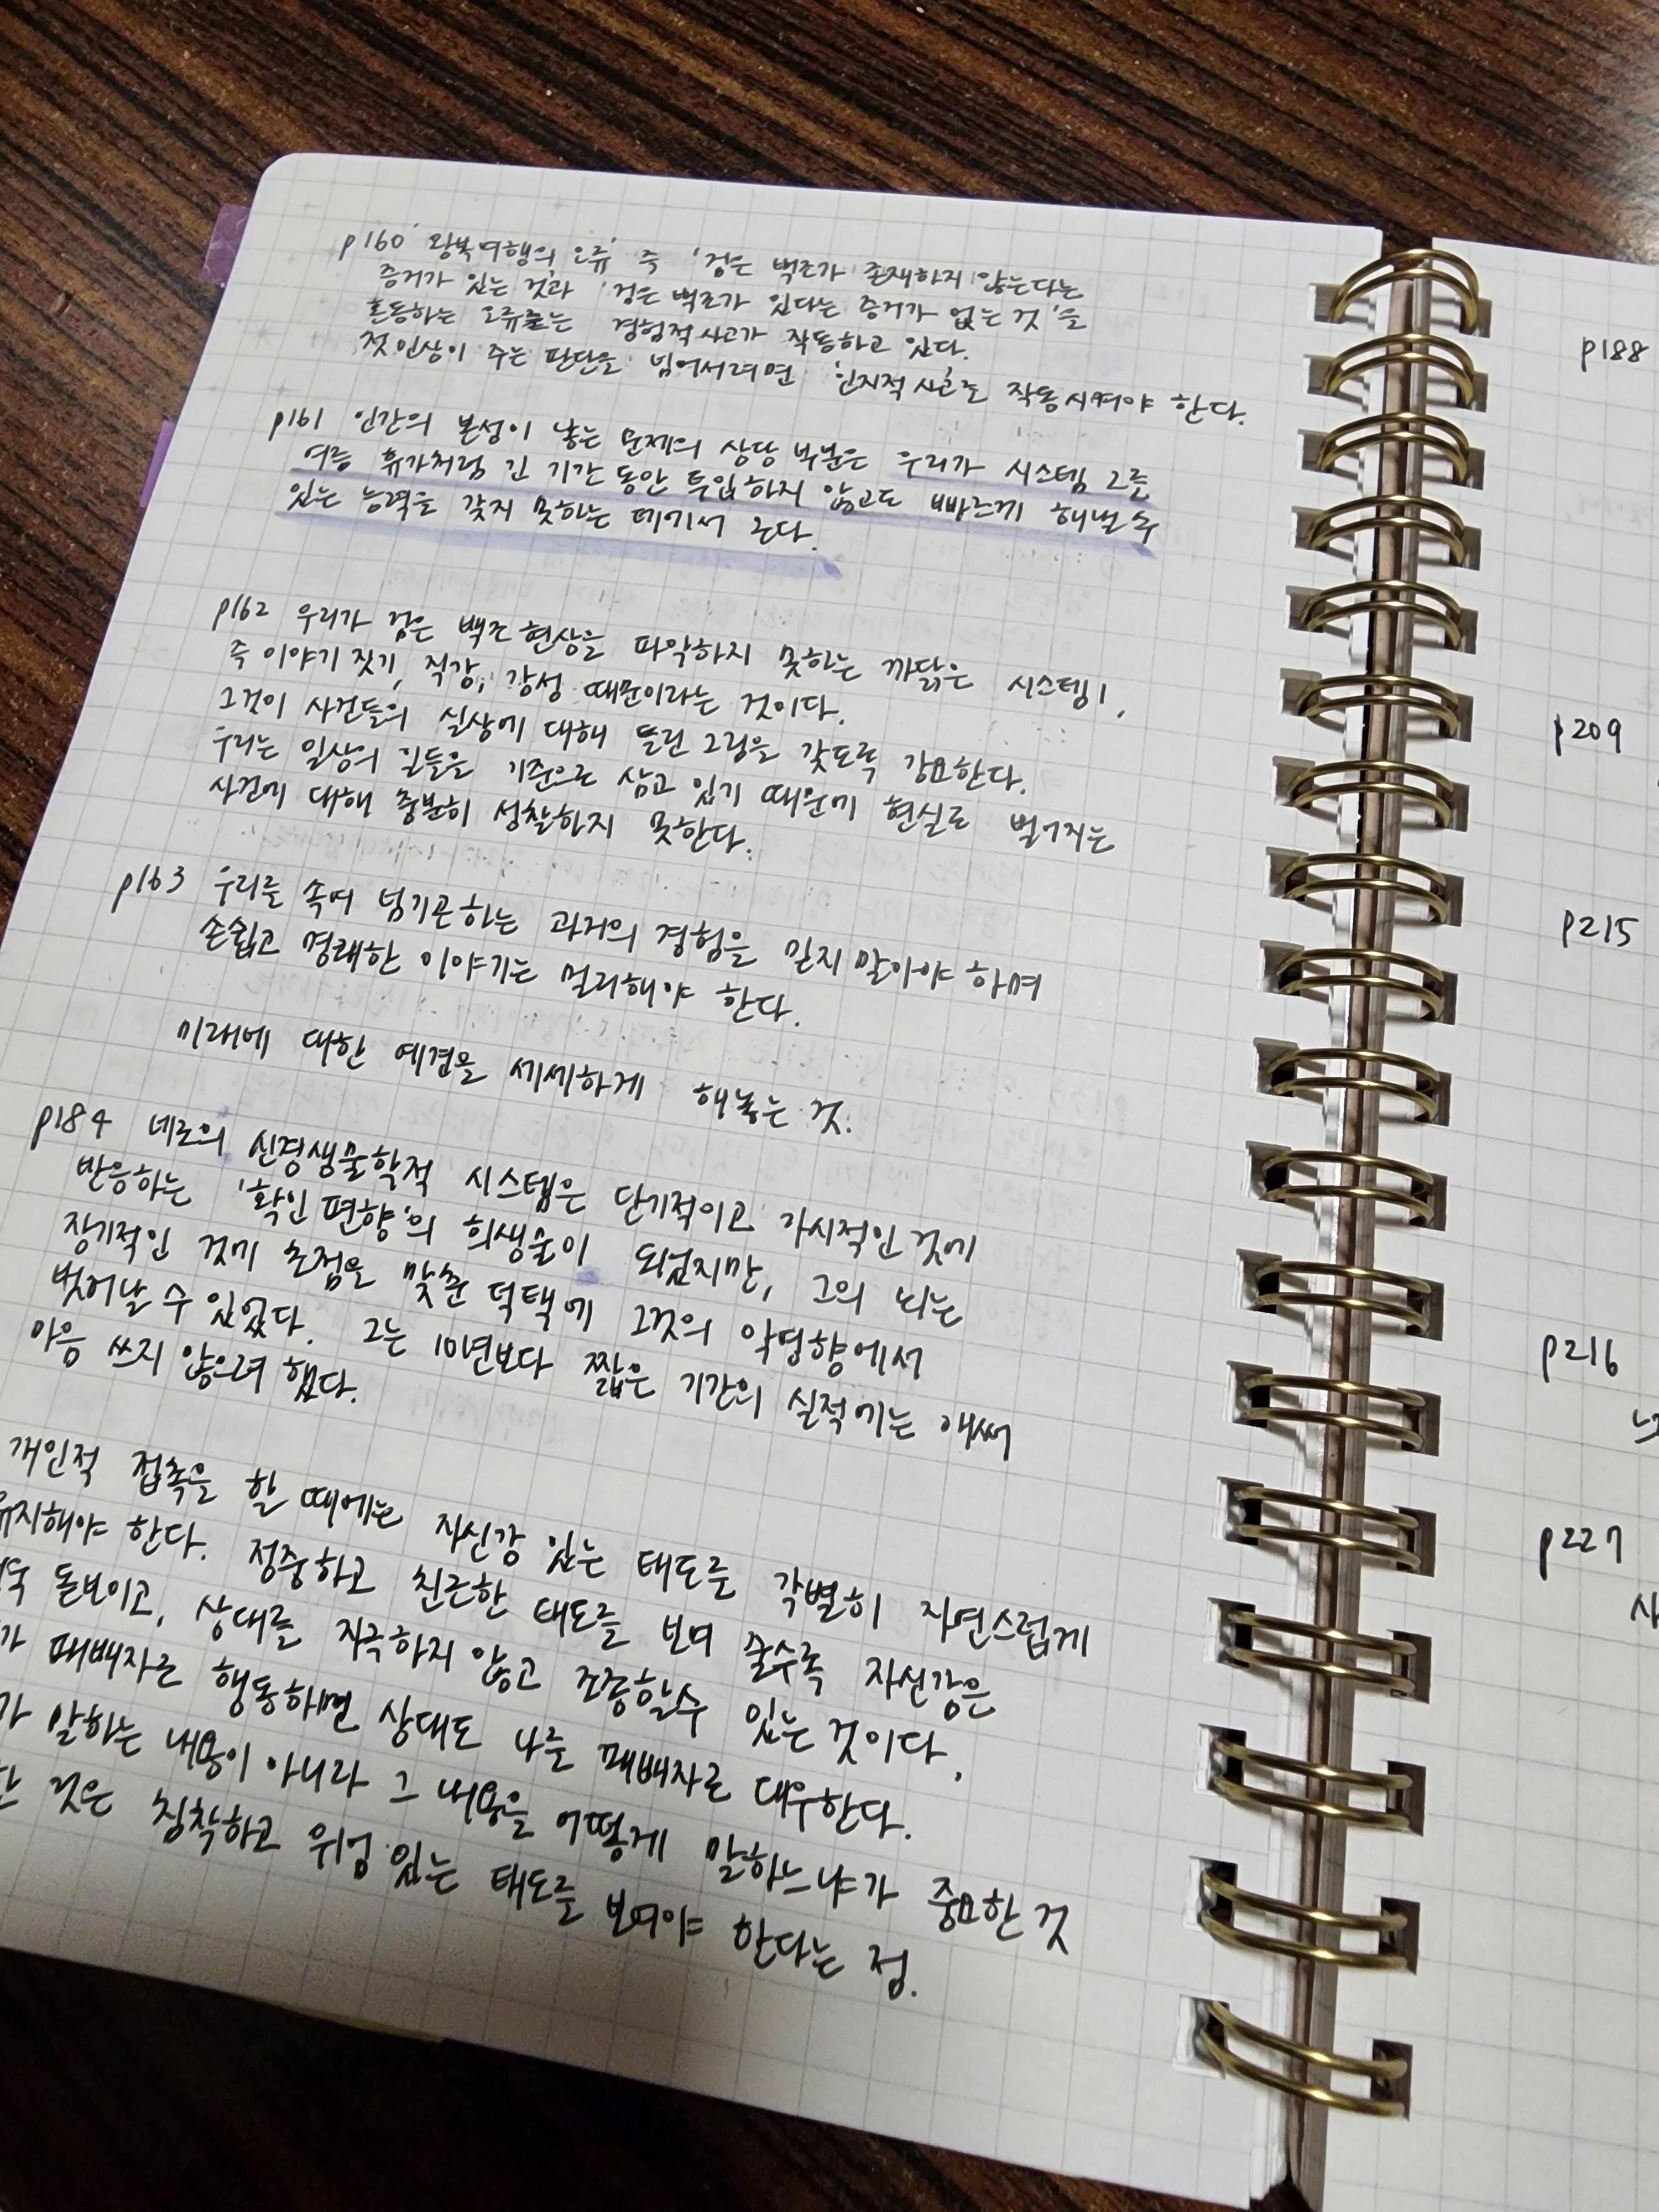 p160 '왕복여행의 오류' 즉 '검은 백조가 존재하지 않는다는
증거가 있는 것'과 '검은 백조가 있다는 증거가 없는 것'을
혼동하는 오류로는 경험적사고가 작동하고 있다.
첫인상이 주는 판단을 넘어서려면 '인지적 사고'를 작동시켜야 한다.
p161 인간의 본성이 낳는 문제의 상당 부분은 우리가 시스템 2를
여름 휴가처럼 긴 기간동안 투입하지 않고도 빠르게 해낼 수
있는 능력을 갖지 못하는 데에서 온다.
p162 우리가 검은 백조 현상을 파악하지 못하는 까닭은 시스템1,
즉 이야기 짓기, 직감, 감성 때문이라는 것이다.
그것이 사건들의 실상에 대해 틀린 그림을 갖도록 강요한다.
우리는 일상의 일들을 기준으로 삼고 있기 때문에 현실로 벌어지는
사건에 대해 충분히 성찰하지 못한다.
p163 우리를 속여 넘기곤하는 과거의 경험을 믿지 말아야 하며
손쉽고 명쾌한 이야기는 멀리해야 한다.
미래에 대한 예견을 세세하게 해놓는 것.
p184 네로의 신경생물학적 시스템은 단기적이고 가시적인 것에
반응하는 '확인 편향'의 희생물이 되었지만, 그의 뇌는
장기적인 것에 초점을 맞춘 덕택에 그것의 악영향에서
벗어날 수 있었다. 그는 10년보다 짧은 기간의 실적에는 애써
마음 쓰지 않으려 했다.
개인적 접촉을 할 때에는 자신감 있는 태도를 각별히 자연스럽게
유지해야 한다. 정중하고 친근한 태도를 보여 줄수록 자신감은
돋보이고, 상대를 자극하지 않고 조종할수 있는 것이다.
가 패배자로 행동하면 상대도 나를 패배자로 대우한다.
가 말하는 내용이 아니라 그 내용을 어떻게 말하느냐가 중요한 것
것은 침착하고 위엄 있는 태도를 보여야 한다는 점.
p188
p209
p215
p216
p227